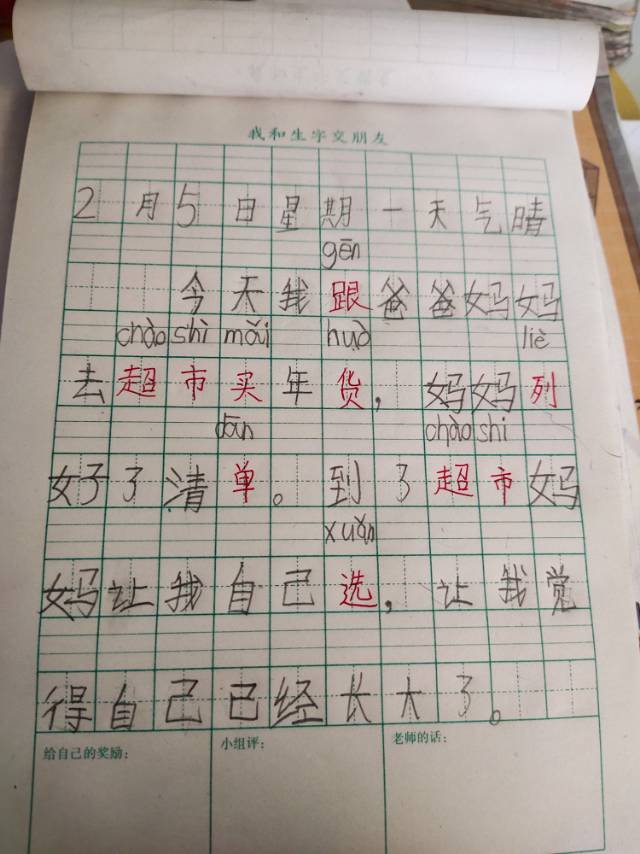 我和生字交朋友
2月5日星期一天气晴
gēn
今天我跟爸爸妈妈
chāo shì mǎi huò liè
去超市买年货，妈妈列
dān chāo shì
好了清单。到了超市妈
xuǎn
妈让我自己选，让我觉
得自己已经长大了。
给自己的奖励：
小组评：
老师的话：